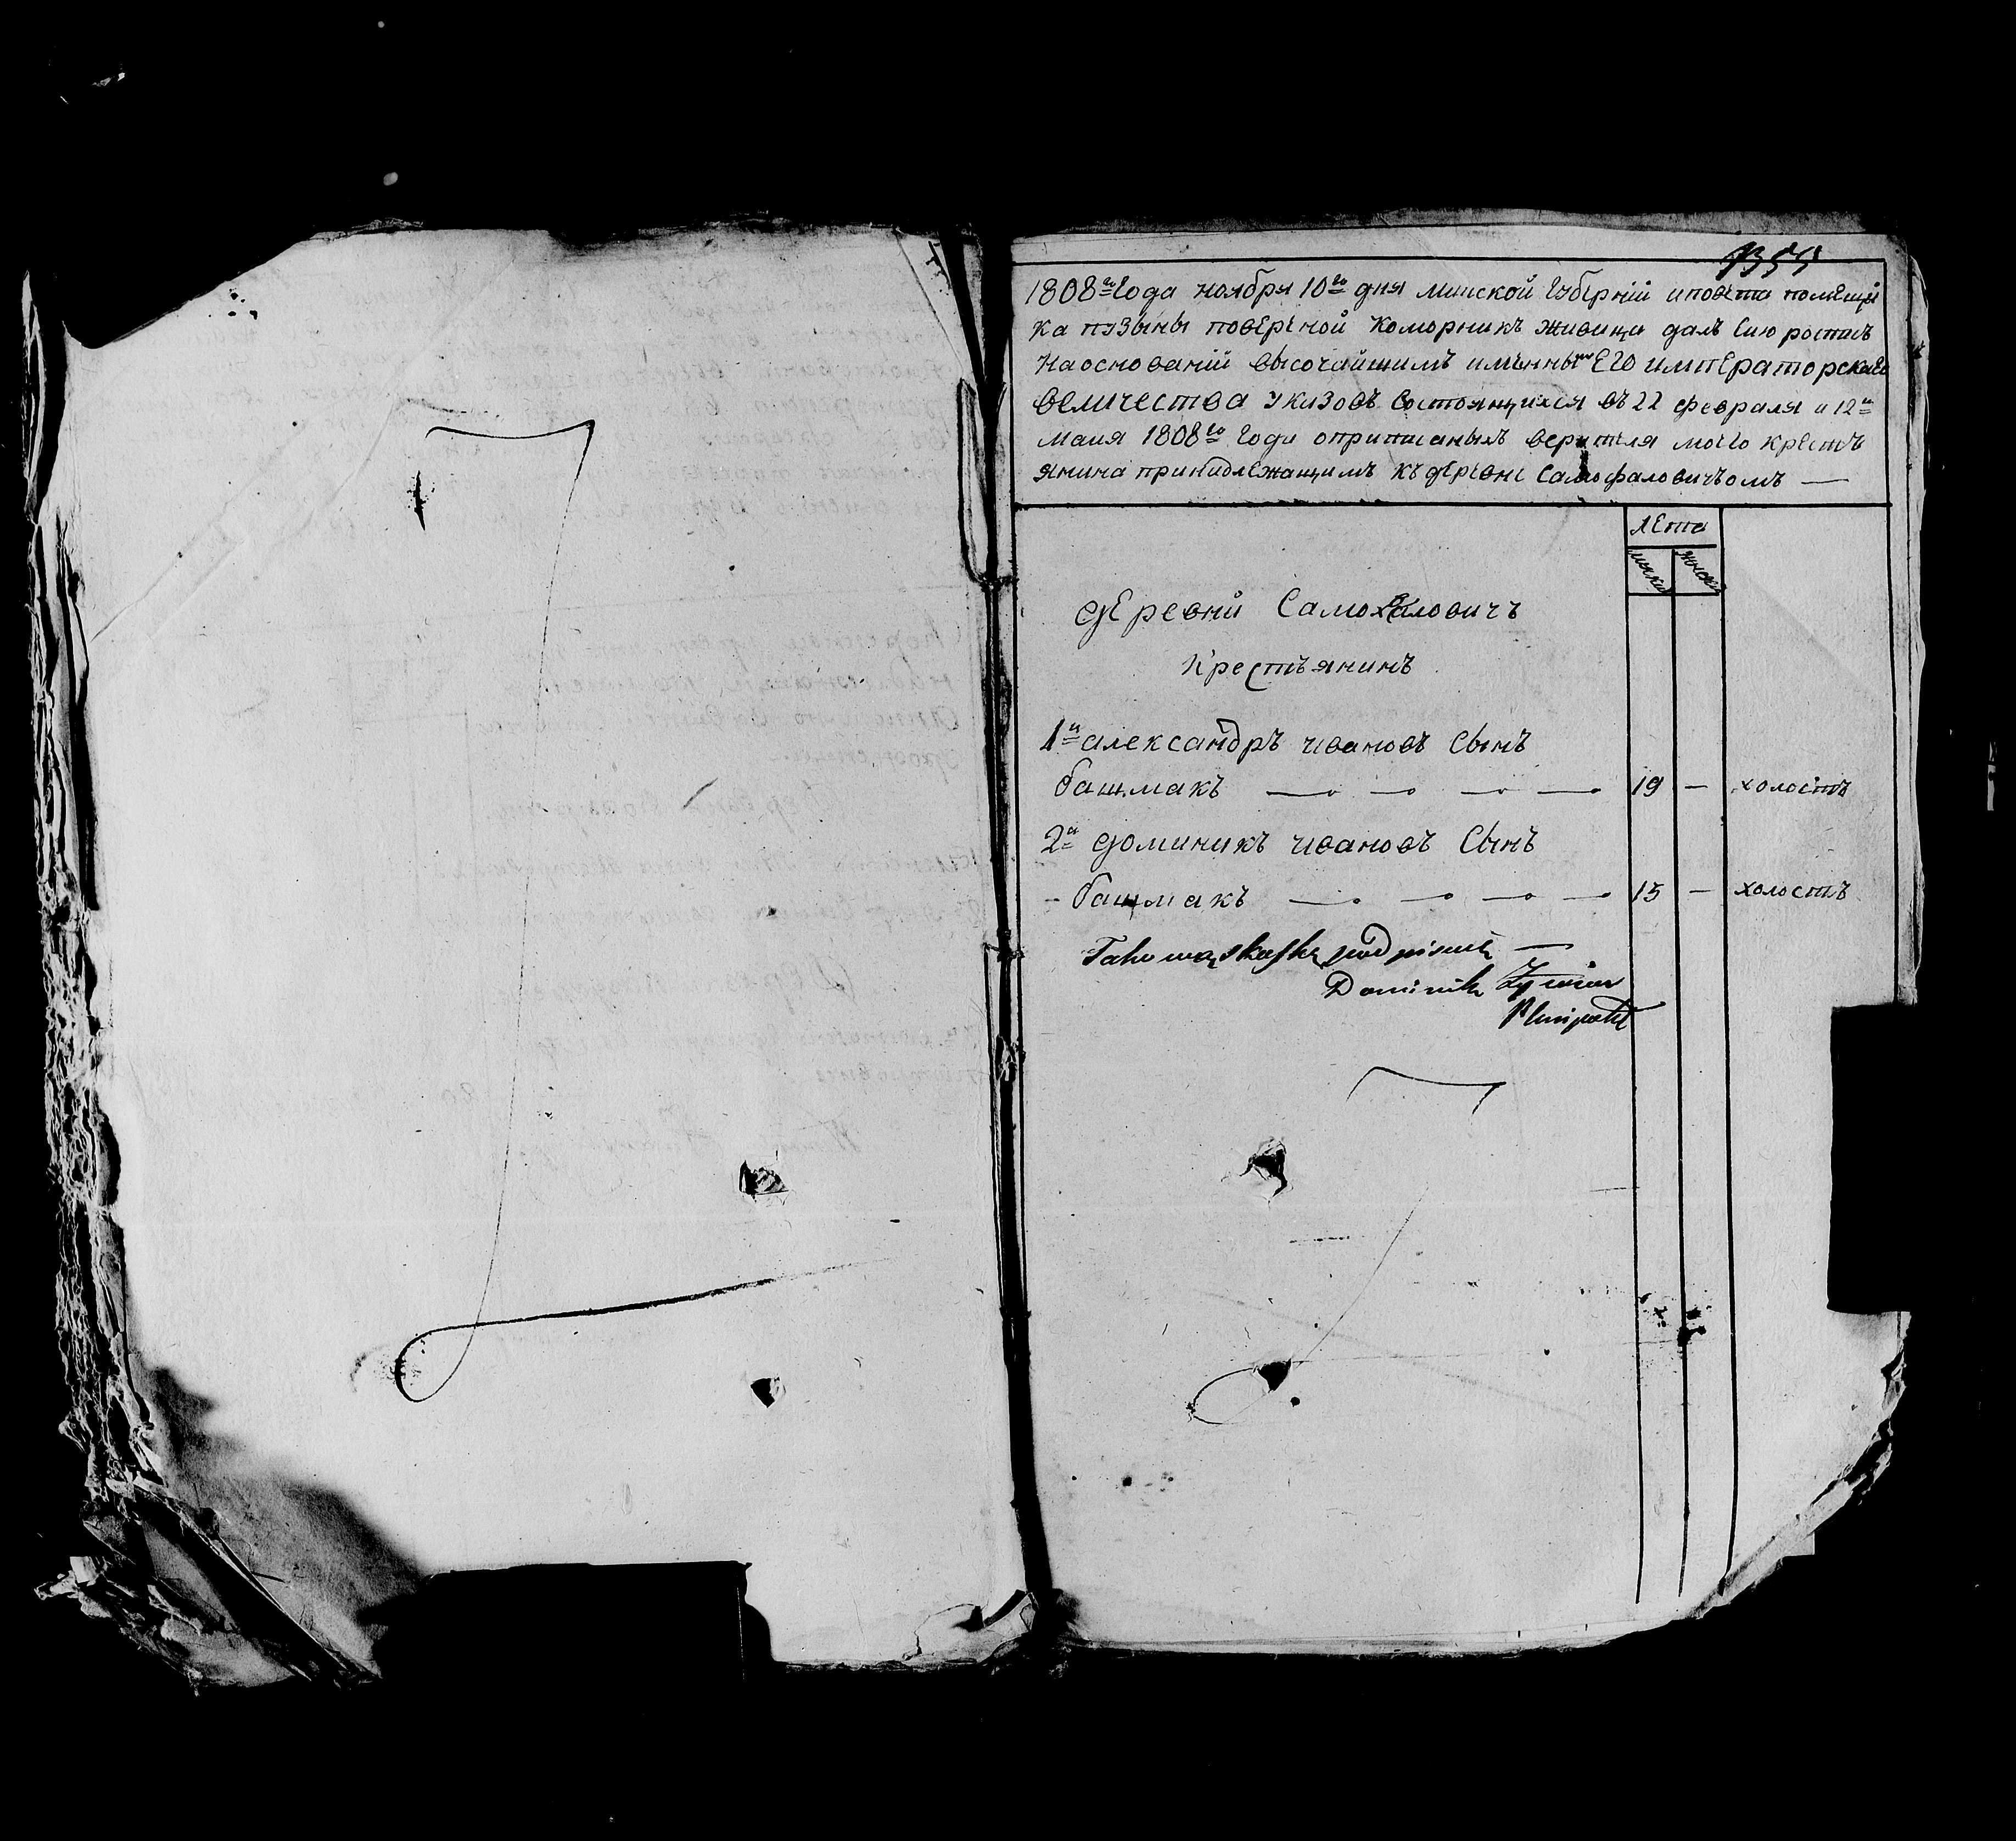 1355
1808го Года ноября 10го дня минской Губерній иповета помещи
ка пузыны поверѣной Коморникъ живица далъ Сию ростпсь
Наоснованій высочайшимъ именных ЕГО императорскаго
величества указовъ Состоянщихся въ 22 февраля и 12и
мания 1808го Года оприписаных верителя моего крестъ
янина принадлежащимъ къ деревне Самофаловичъомъ —
лета
мужска
женска
деревни Самохваловичъ
Крестъянинъ
1и александръ ивановъ Сынъ
башмакъ — — — — 19 — холостъ
2и доминикъ ивановъ Сынъ
башмакъ — — — — 15 — холостъ
Takową skaskę podpisuię —
Dominik
Plenipotent